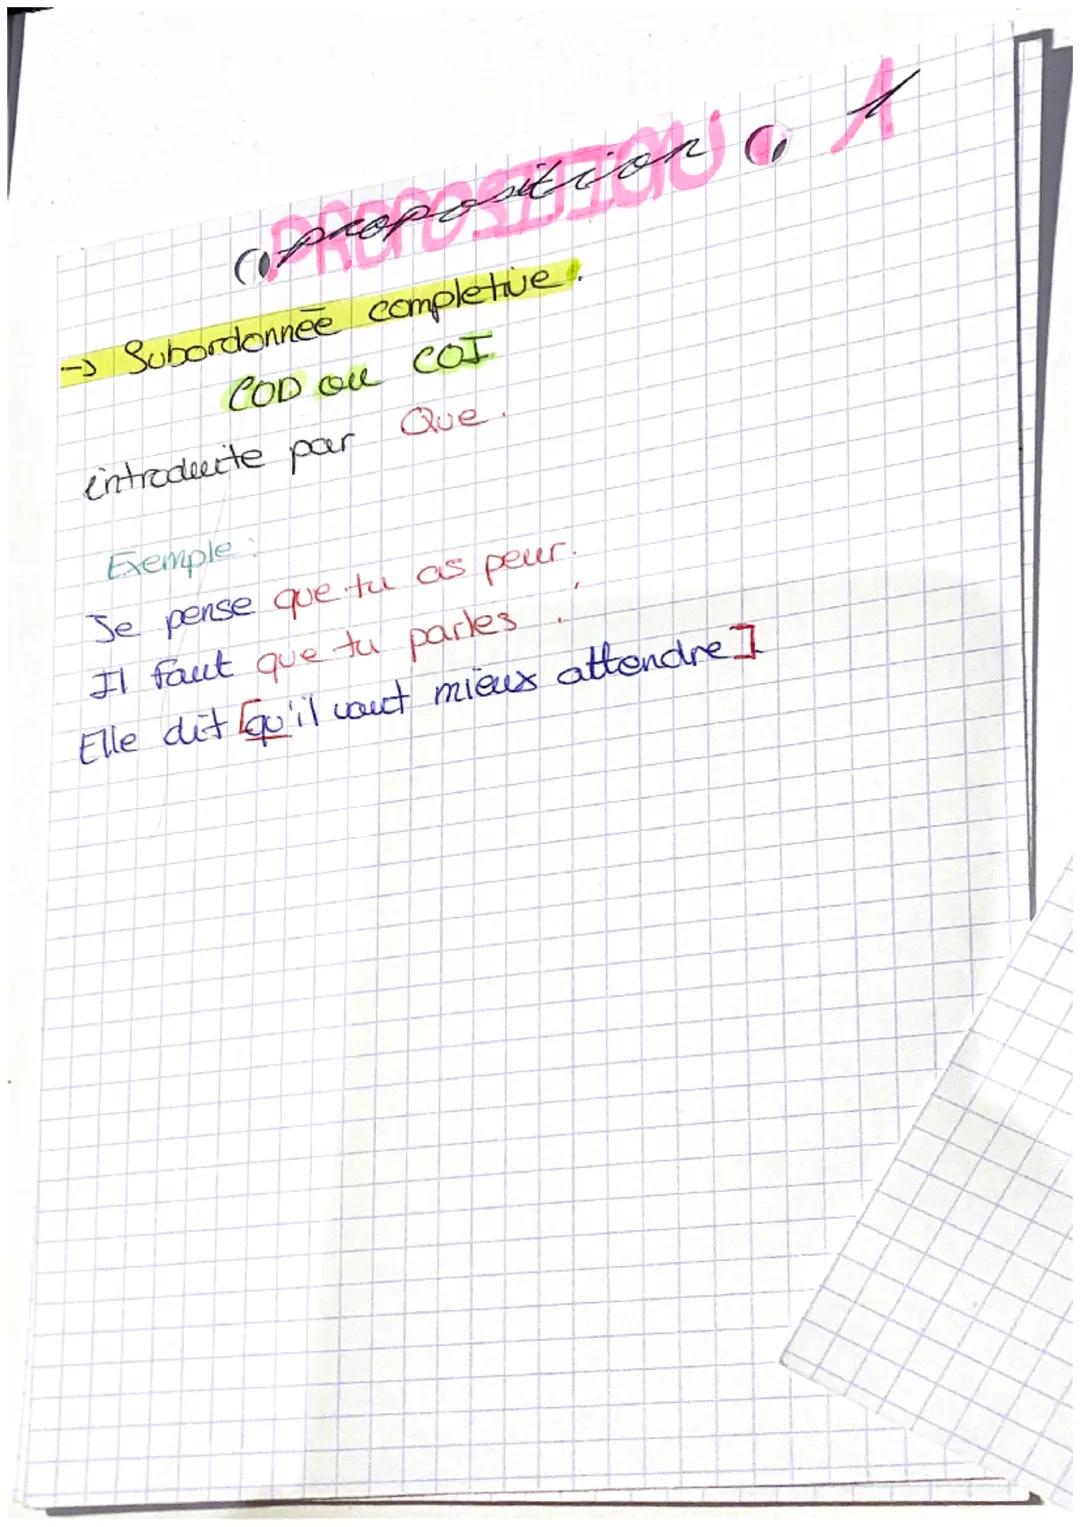 PROPOSITION
proposition 1
-> Subordonnée completive.
COD ou COI
introduite par Que.
Exemple:
Je pense que tu as peur.
Il faut que tu parles.
Elle dit [qu'il vaut mieux attendre]